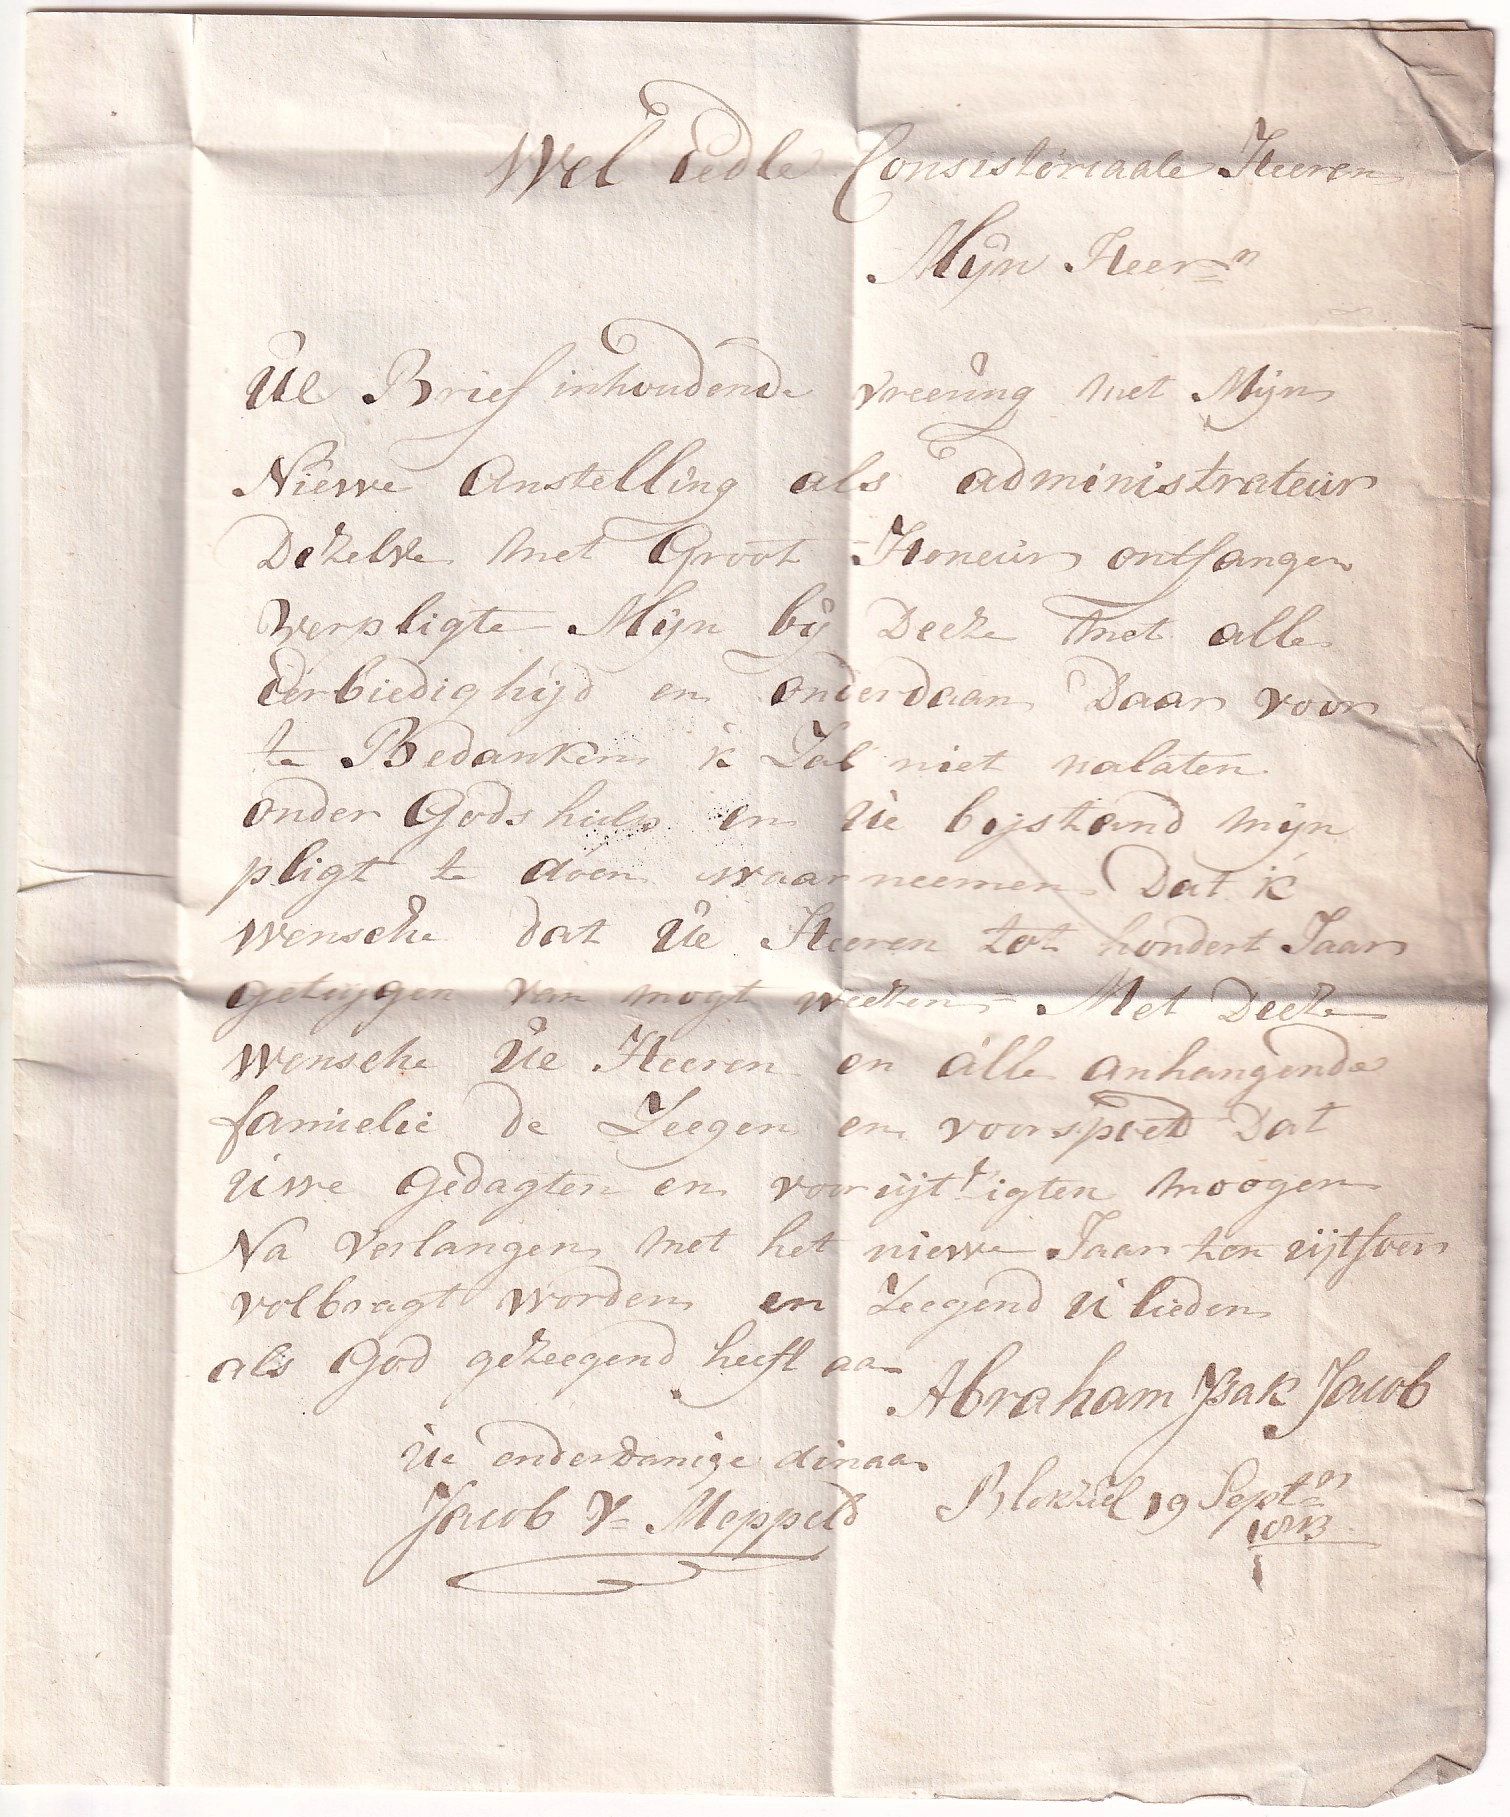 Wel Eedle Consistoriaale Heeren
Mijn Heeren
Ue Brief inhoudende vreeüng met Mijn
Niewe Anstelling als administrateur
Dezelve met Groot Honeur ontfangen
verpligte Mijn bij Deeze met alle
eerbiedighijd en onderdaan Daar voor
te Bedanken ik Zal niet nalaten
onder Gods hulp en Ue bijstand mijn
pligt te doen waar neemen Dat ik
wensche dat Ue Heeren tot hondert Jaar
getuygen van mogt weezen Met Deeze
wensche Ue Heeren en alle anhangende
famielie de Zeegen en voorspoed Dat
uwe Gedagten en moogen
Na verlangen met het niewe Jaar ten uijtvoer
volbragt worden en Zeegend u lieden
als God gezeegend heeft aan
Abraham Isak Jacob
Ue onderdanige dinaar
Jacob v= Meppeld
Blokziel 19 Septn
1813